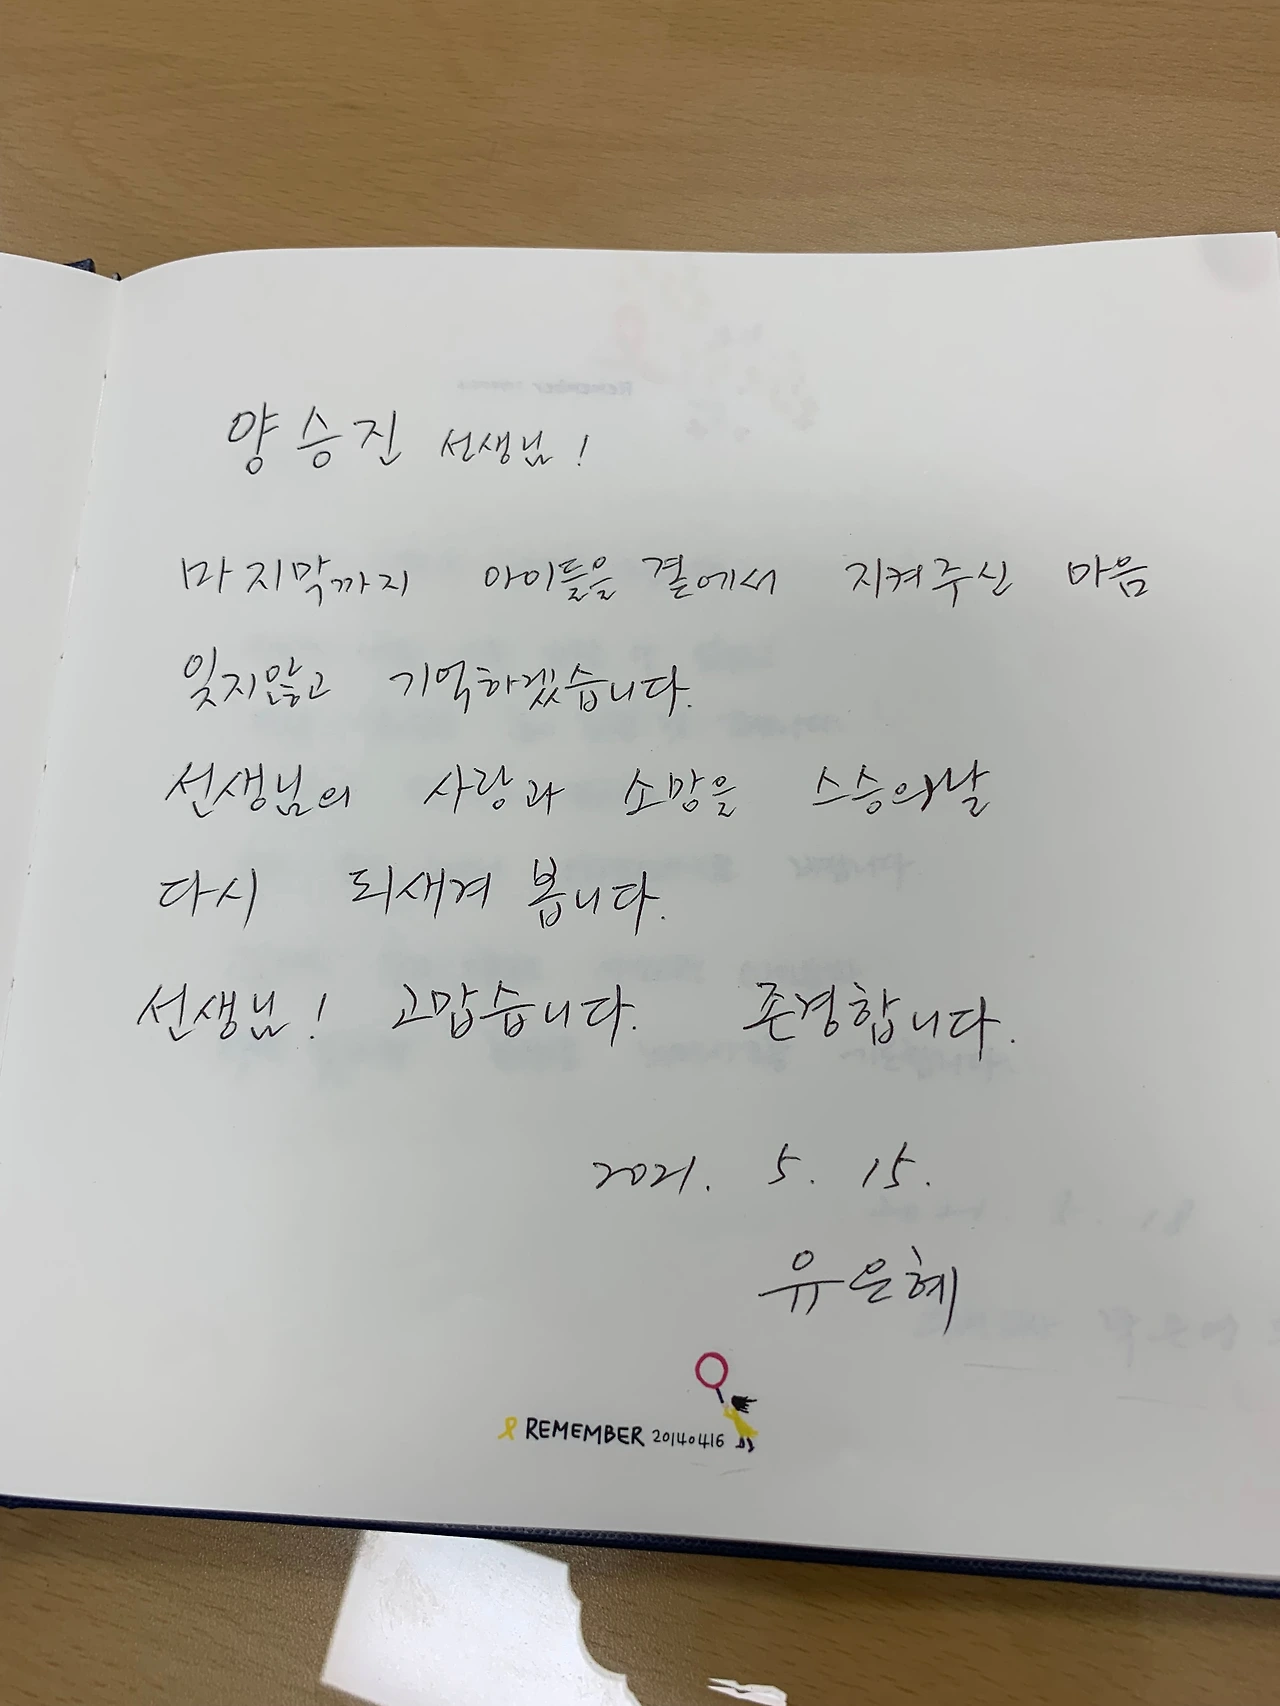 양승진 선생님!
마지막까지 아이들을 곁에서 지켜주신 마음
잊지않고 기억하겠습니다.
선생님의 사랑과 소망을 스승의날
다시 되새겨 봅니다.
선생님! 고맙습니다. 존경합니다.
2021. 5. 15.
유은혜
REMEMBER 20140416